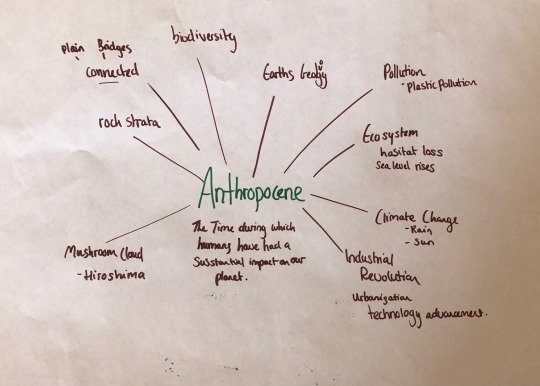 biodiversity
plain Bridges
connected
Earths Geology
Pollution
• Plastic Pollution
rock strata
Ecosystem
habitat loss
Sea level rises
Anthropocene
The Time during which
humans have had a
Substantial impact on our
planet.
Climate Change
- Rain
- Sun
Mushroom Cloud
- Hiroshima
Industrial
Revolution
Urbanization
technology advancement.